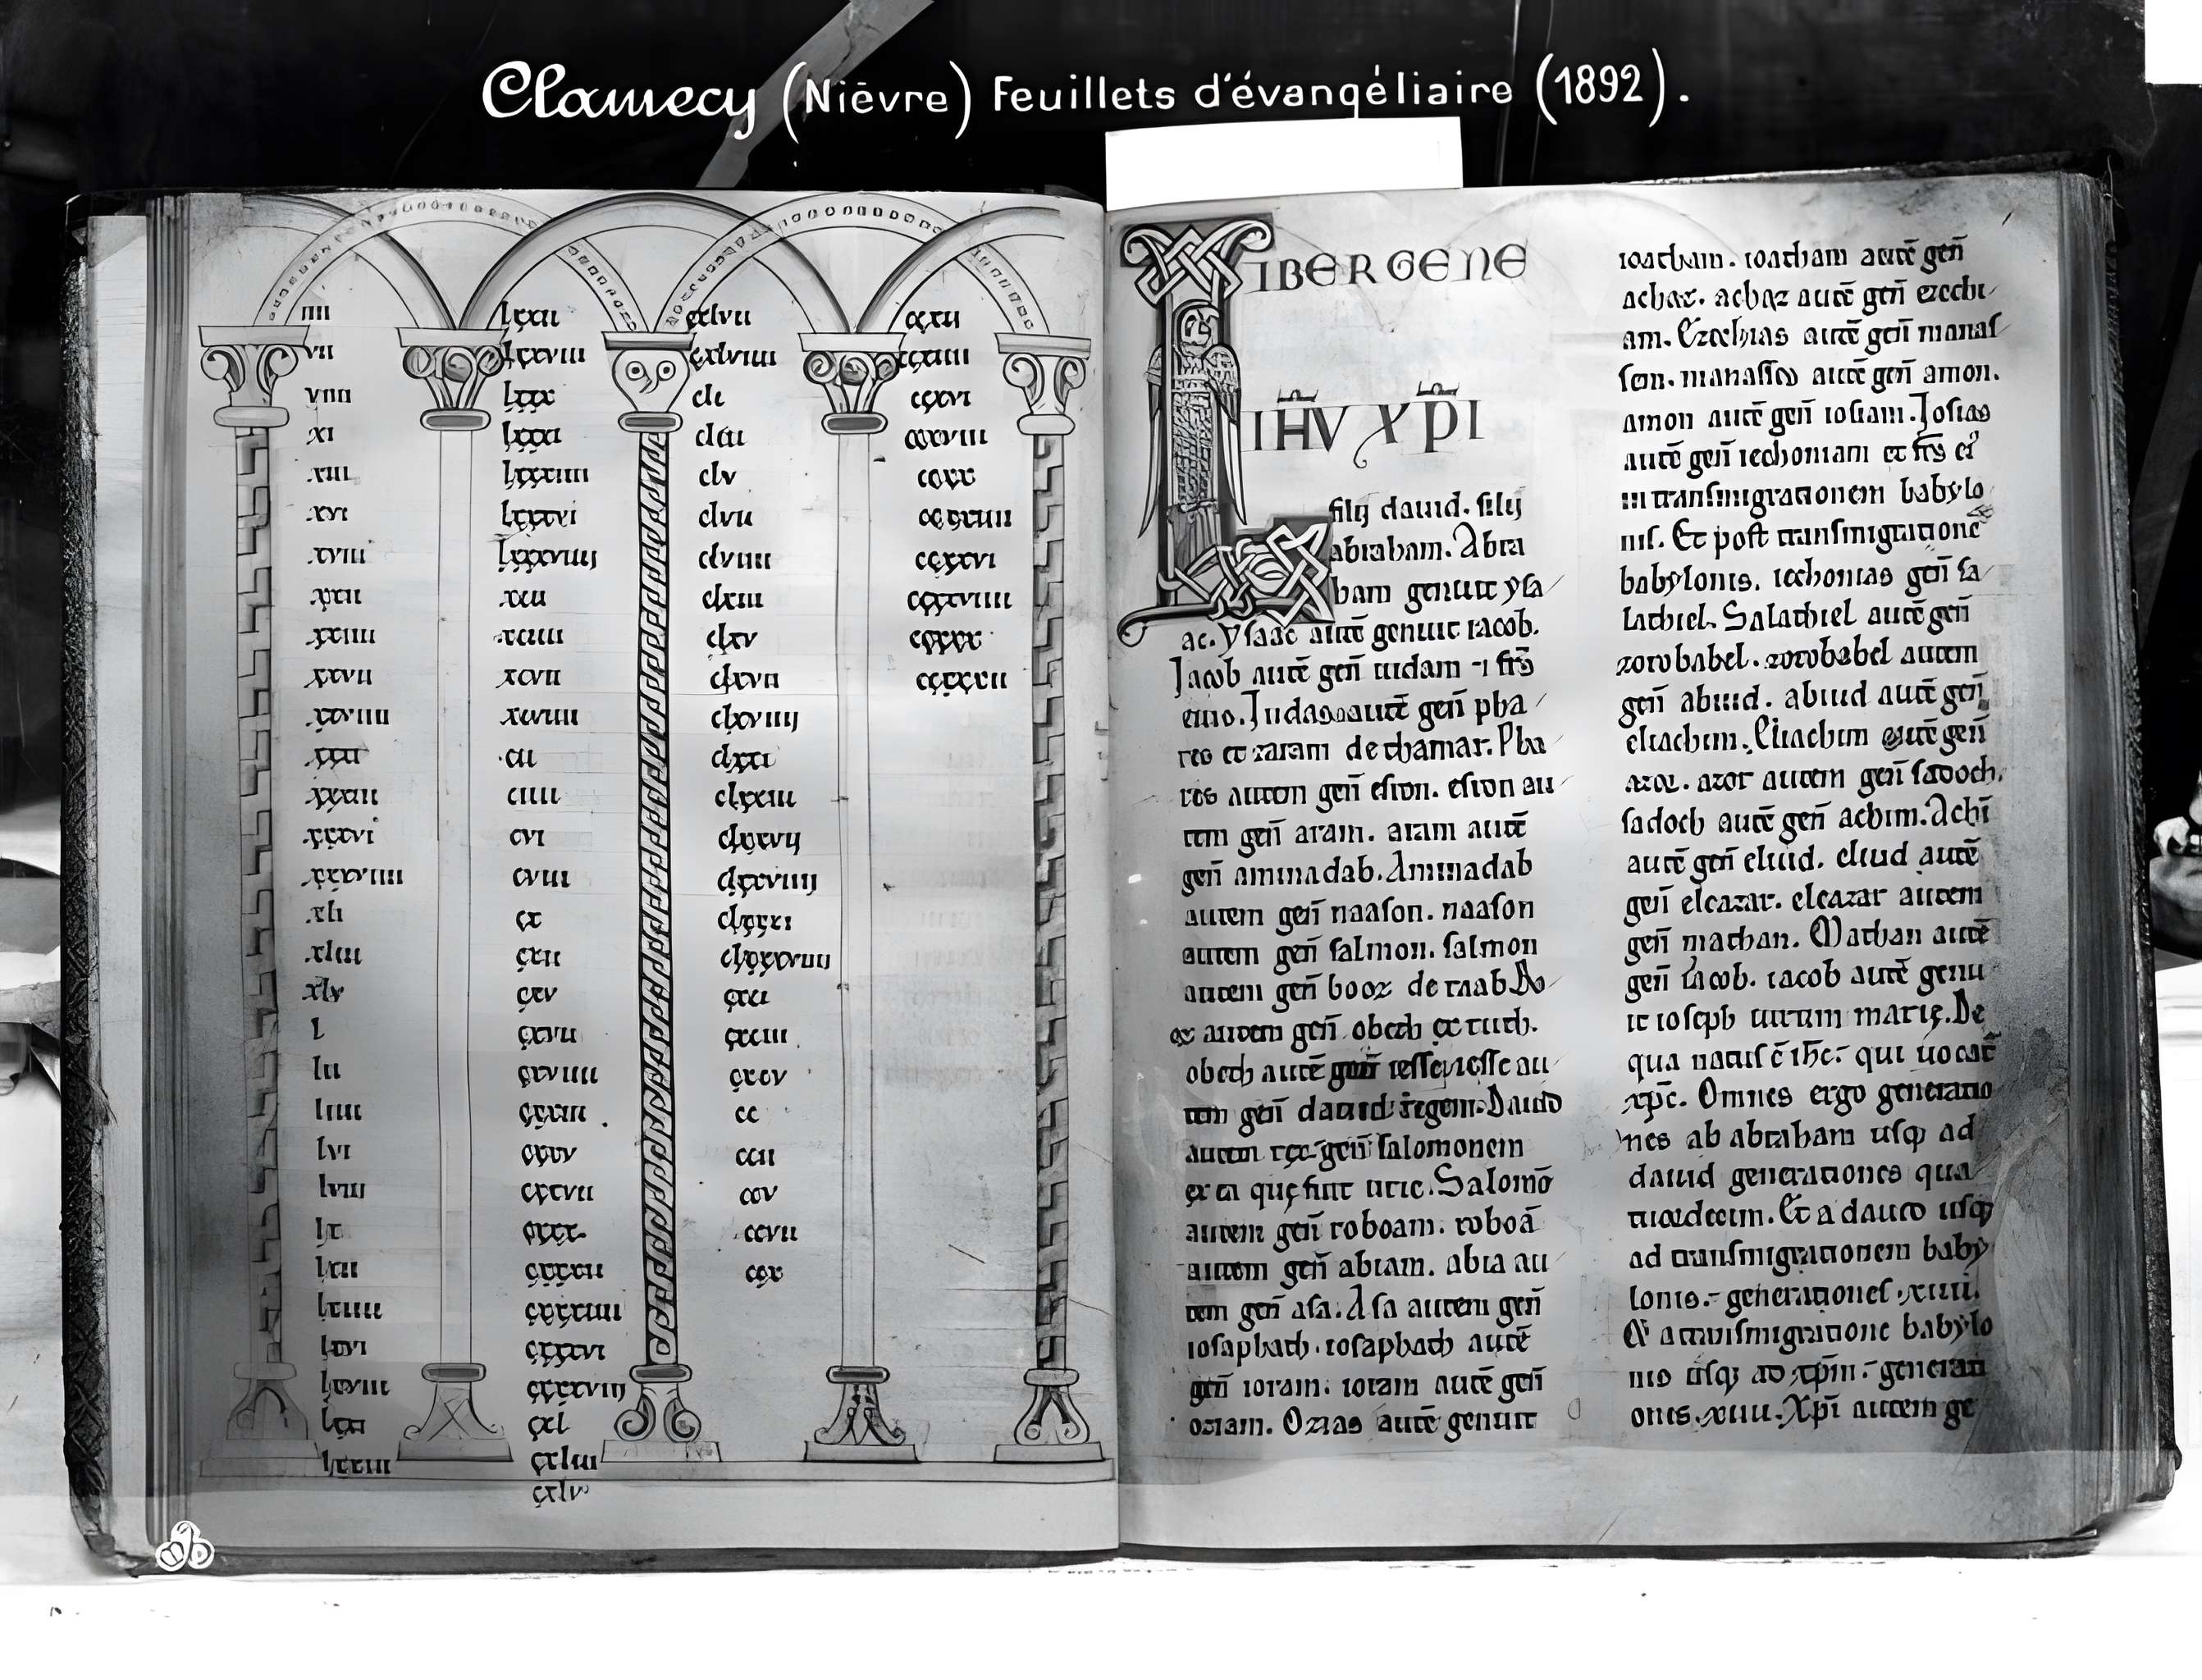 Clamecy (Nièvre) Feuillets d'évangéliaire (1892).
IIII
VII
VIIII
XI
XIII
XVI
XVIII
XXII
XXIIII
XXVII
XXVIIII
XXXII
XXXVI
XXXVIIII
XLI
XLIII
XLV
L
LII
LIIII
LVI
LVIII
LX
LXII
LXIIII
LXVI
LXVIII
LXXIII
LXXII
LXXVIIII
LXXX
LXXXIIII
LXXXVI
LXXXVIIII
XCII
XCIIII
XCVII
CII
CIIII
CVI
CVIII
CX
CXII
CXV
CXVII
CXVIIII
CXXV
CXXVII
CXXX
CXXXII
CXXXIIII
CXXXVI
CXXXVIII
CXL
CXLIII
CXLV
CXLVII
CXLVIIII
CLI
CLIII
CLV
CLVII
CLVIIII
CLXIII
CLXV
CLXVII
CLXVIIII
CLXXI
CLXXIII
CLXXVII
CLXXVIIII
CLXXXI
CXCI
CXCIII
CXCV
CC
CCII
CCV
CCVII
CCX
CCXII
CCXIIII
CCXVI
CCXVIII
CCXX
CCXXVI
CCXXVIIII
CCXXX
CCXXXII
LIBER GENE
IHV XPI
filij dauid. filij
abraham. Abra
ham genuit ysa
ac. ysaac autē genuit iacob.
Jacob autē geñ iudam ⁊ frs̄
eius. Judas autē geñ pha
res et zaram de thamar. Pha
res autem geñ esron. esron au
tem geñ aram. aram autē
geñ aminadab. Aminadab
autem geñ naason. naason
autem geñ salmon. salmon
autem geñ booz de raab. Bo
oz autem geñ obeth ex ruth.
obeth autē geñ iesse. iesse au
tem geñ dauid regem. Dauid
autem rex geñ salomonem
ex ea quę fuit urie. Salomō
autem geñ roboam. roboā
autem geñ abiam. abia au
tem geñ asa. Asa autem geñ
iosaphath. iosaphath autē
geñ ioram. ioram autē geñ
oziam. Ozias autē genuit
ioatham. ioatham autē geñ
achaz. achaz autē geñ ezechi
am. Ezechias autē geñ manas
sen. manasses autē geñ amon.
amon autē geñ iosiam. Josias
autē geñ iechoniam et frs̄ ei'
in transmigrationem babylo
nis. Et post transmigrationē
babylonis. iechonias geñ sa
lathiel. Salathiel autē geñ
zorobabel. zorobabel autem
geñ abiud. abiud autē geñ
eliachim. Eliachim autē geñ
azor. azor autem geñ sadoch.
sadoch autē geñ achim. Achī
autē geñ eliud. eliud autē
geñ eleazar. eleazar autem
geñ mathan. Mathan autē
geñ iacob. iacob autē genu
it ioseph uirum marię. De
qua natus ē ihc̄. qui uocat̄
xpc̄. Omnes ergo generatio
nes ab abraham usq; ad
dauid generationes qua
tuordecim. Et a dauid usq;
ad transmigrationem baby
lonis. generationes xiiii.
Et a transmigratione babylo
nis usq; ad xpm̄. generati
ones. xiiii. Xpī autem ge